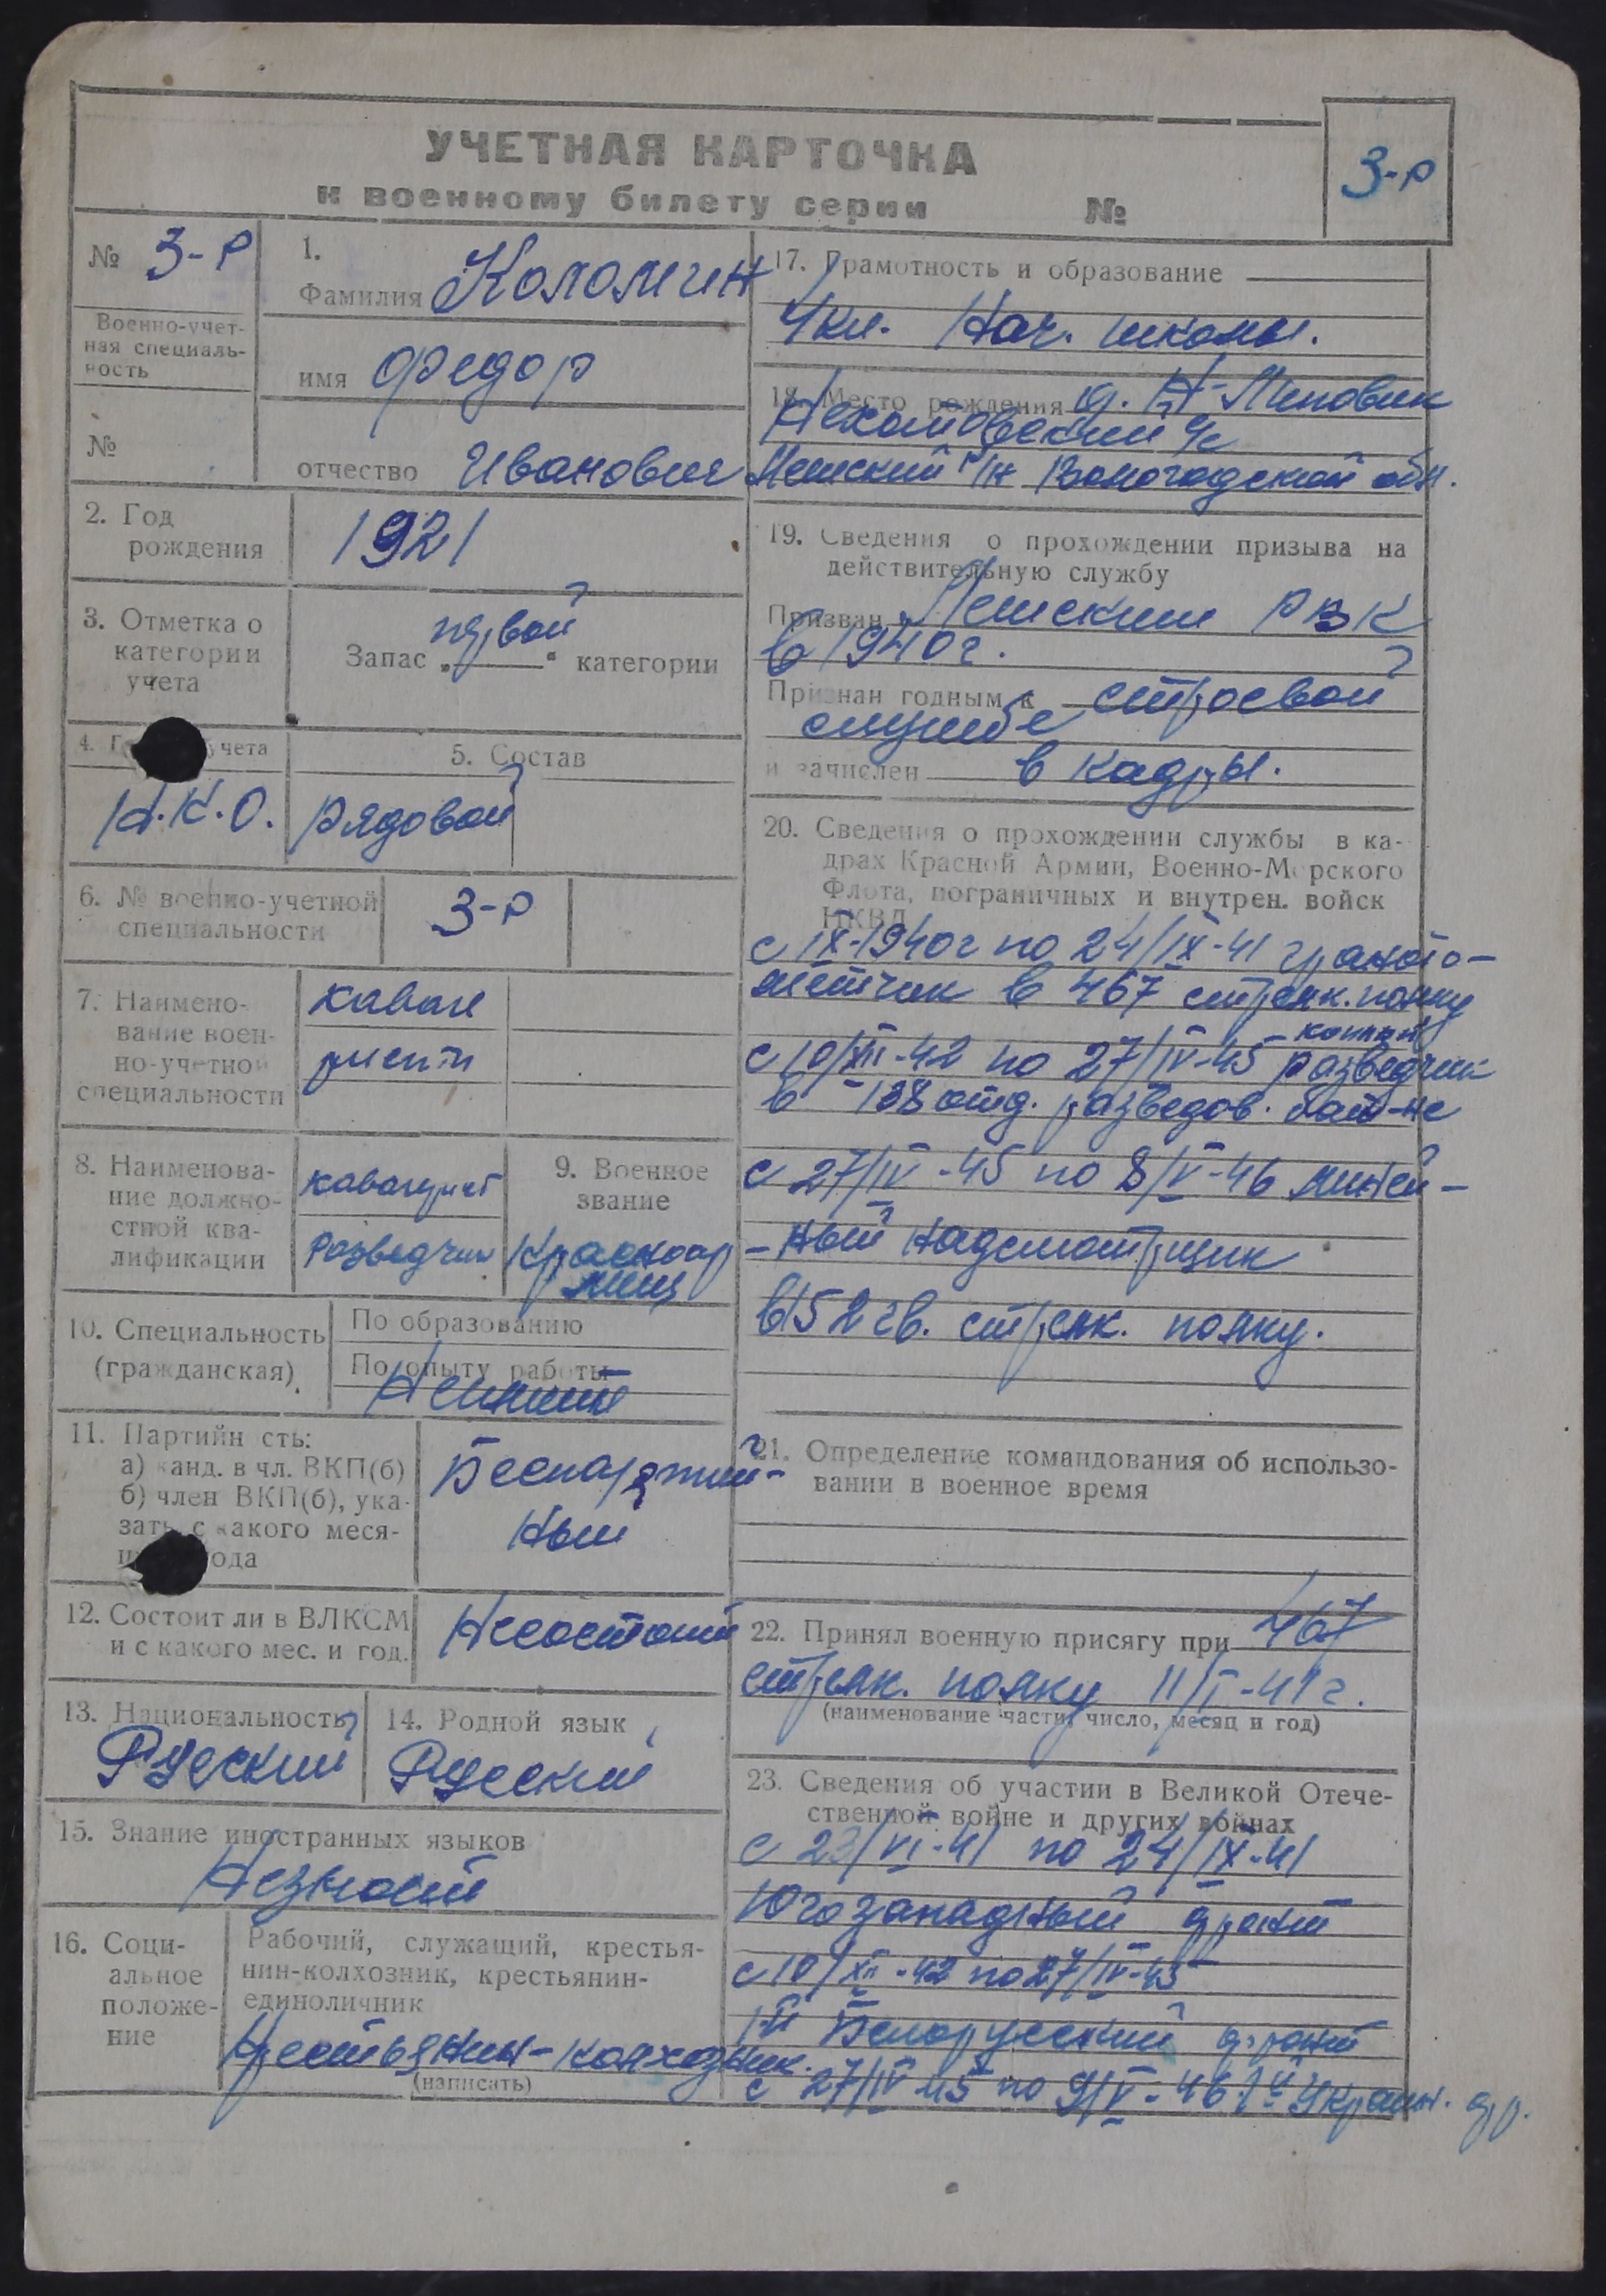 УЧЕТНАЯ КАРТОЧКА
к военному билету серии №
3-Р
№ 3-Р
Военно-учет-
ная специаль-
ность
№
1.
Фамилия Коломин
имя Федор
отчество Иванович
2. Год
рождения
1921
3. Отметка о
категории
учета
Запас „первой“ категории
4. Г учета
Н.К.О.
5. Состав
Рядовой
6. № военно-учетной
специальности
3-Р
7. Наимено-
вание воен-
но-учетной
специальности
кавале
рист
8. Наименова-
ние должно-
стной ква-
лификации
кавалерист
Разведчик
9. Военное
звание
Красноар
меец
10. Специальность
(гражданская)
По образованию
По опыту работы
Неимеет
11. Партийн сть:
а) канд. в чл. ВКП(б)
б) член ВКП(б), ука-
зать с какого меся-
ц ода
Беспартий-
ный
12. Состоит ли в ВЛКСМ
и с какого мес. и год.
Несостоит
13. Национальность
Русский
14. Родной язык
Русский
15. Знание иностранных языков
Незнает
16. Соци-
альное
положе-
ние
Рабочий, служащий, крестья-
нин-колхозник, крестьянин-
единоличник
Крестьянин-колхозник.
(написать)
17. Грамотность и образование
4кл. Нач. школы.
18. Место рождения д. Н-Липовик
с/с
р/н Вологодской обл.
19. Сведения о прохождении призыва на
действительную службу
Призван РВК
в 1940г.
Признан годным к строевой
службе
и зачислен в кадры.
20. Сведения о прохождении службы в ка-
драх Красной Армии, Военно-Морского
Флота, пограничных и внутрен. войск
НКВД
с IX-1940г по 24/IX-41 гранато-
метчик в 467 стрелк. полку
с 10/XII-42 по 27/IV-45 конный
разведчик
в 138 отд. разведов. бат-не
с 27/IV-45 по 8/V-46 линей-
-ный надсмотрщик
в 152 гв. стрелк. полку.
21. Определение командования об использо-
вании в военное время
22. Принял военную присягу при 467
стрелк. полку 11/I-41г.
(наименование части, число, месяц и год)
23. Сведения об участии в Великой Отече-
ственной войне и других войнах
с 23/VI-41 по 24/IX-41
Югозападный фронт
с 10/XII-42 по 27/IV-45
1-й Белорусский фронт
с 27/IV-45 по 9/V-46 1й Украин. фр.